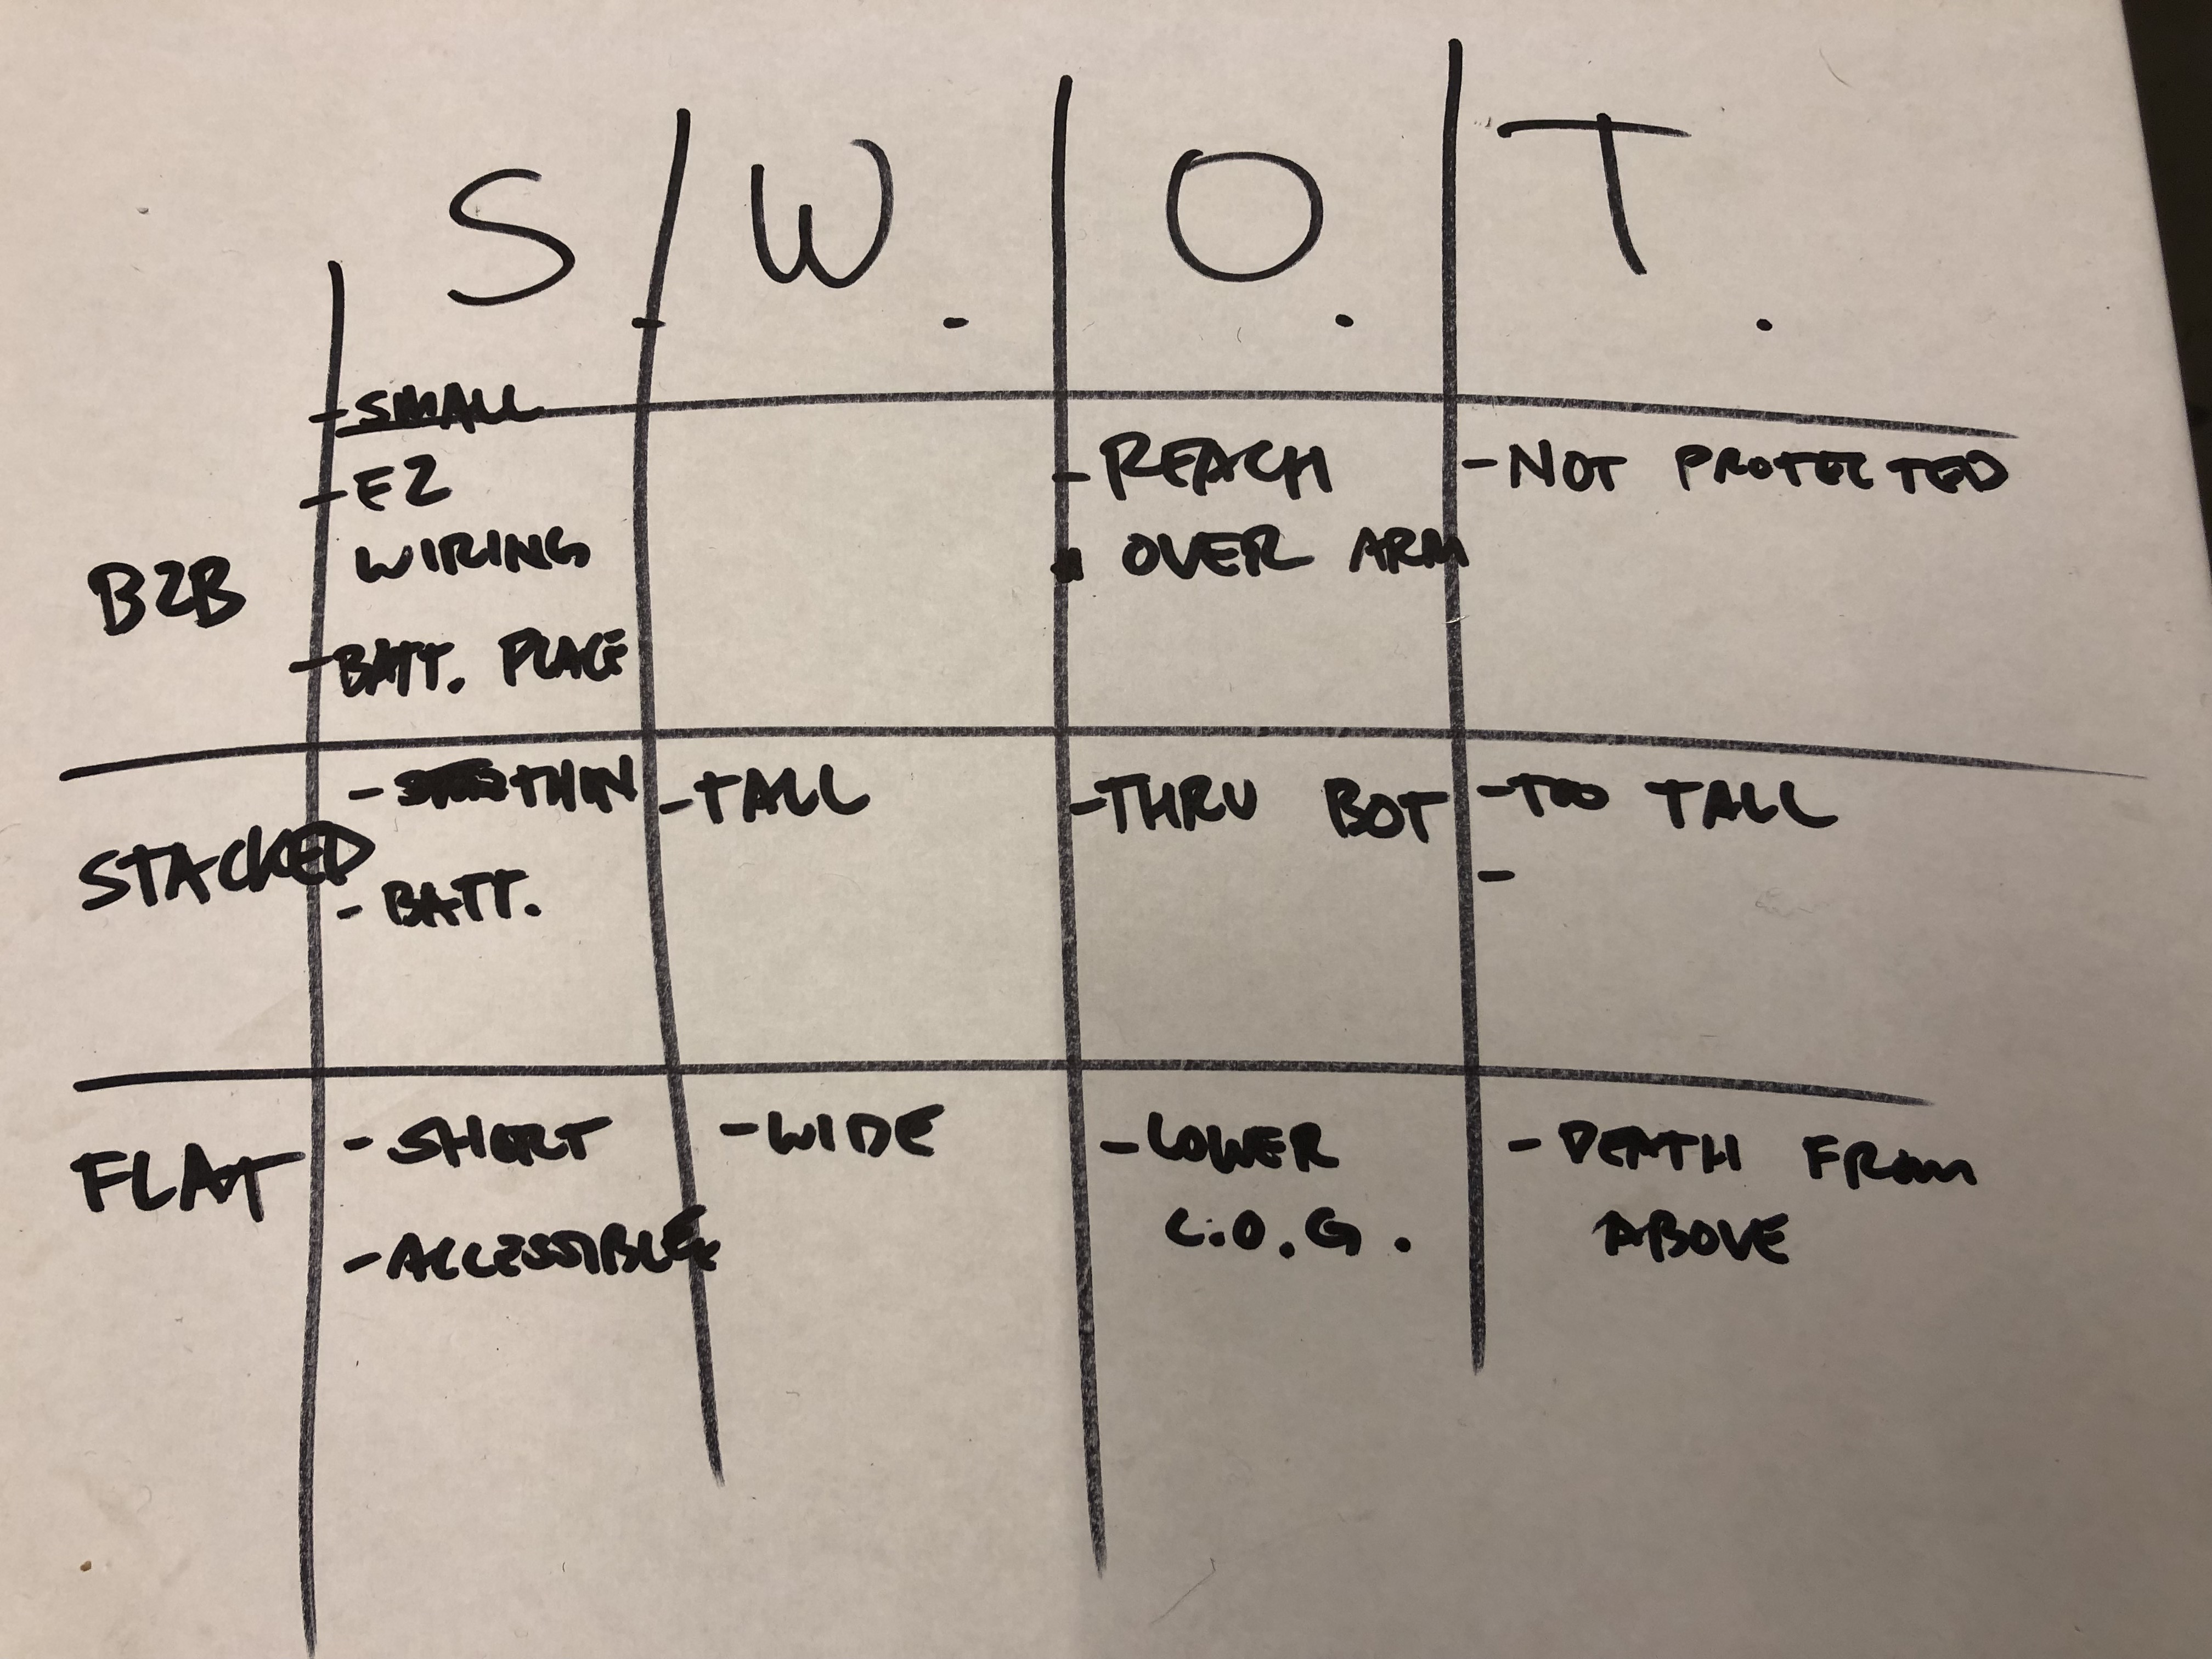 S W O T
B2B
-SMALL
-EZ
WIRING
-BATT. PLACE
-REACH
OVER ARM
-NOT PROTECTED
STACKED
-THIN
-BATT.
-TALL
-THRU BOT
-TOO TALL
-
FLAT
-SHORT
-ACCESSIBLE
-WIDE
-LOWER
C.O.G.
-DEATH FROM
ABOVE